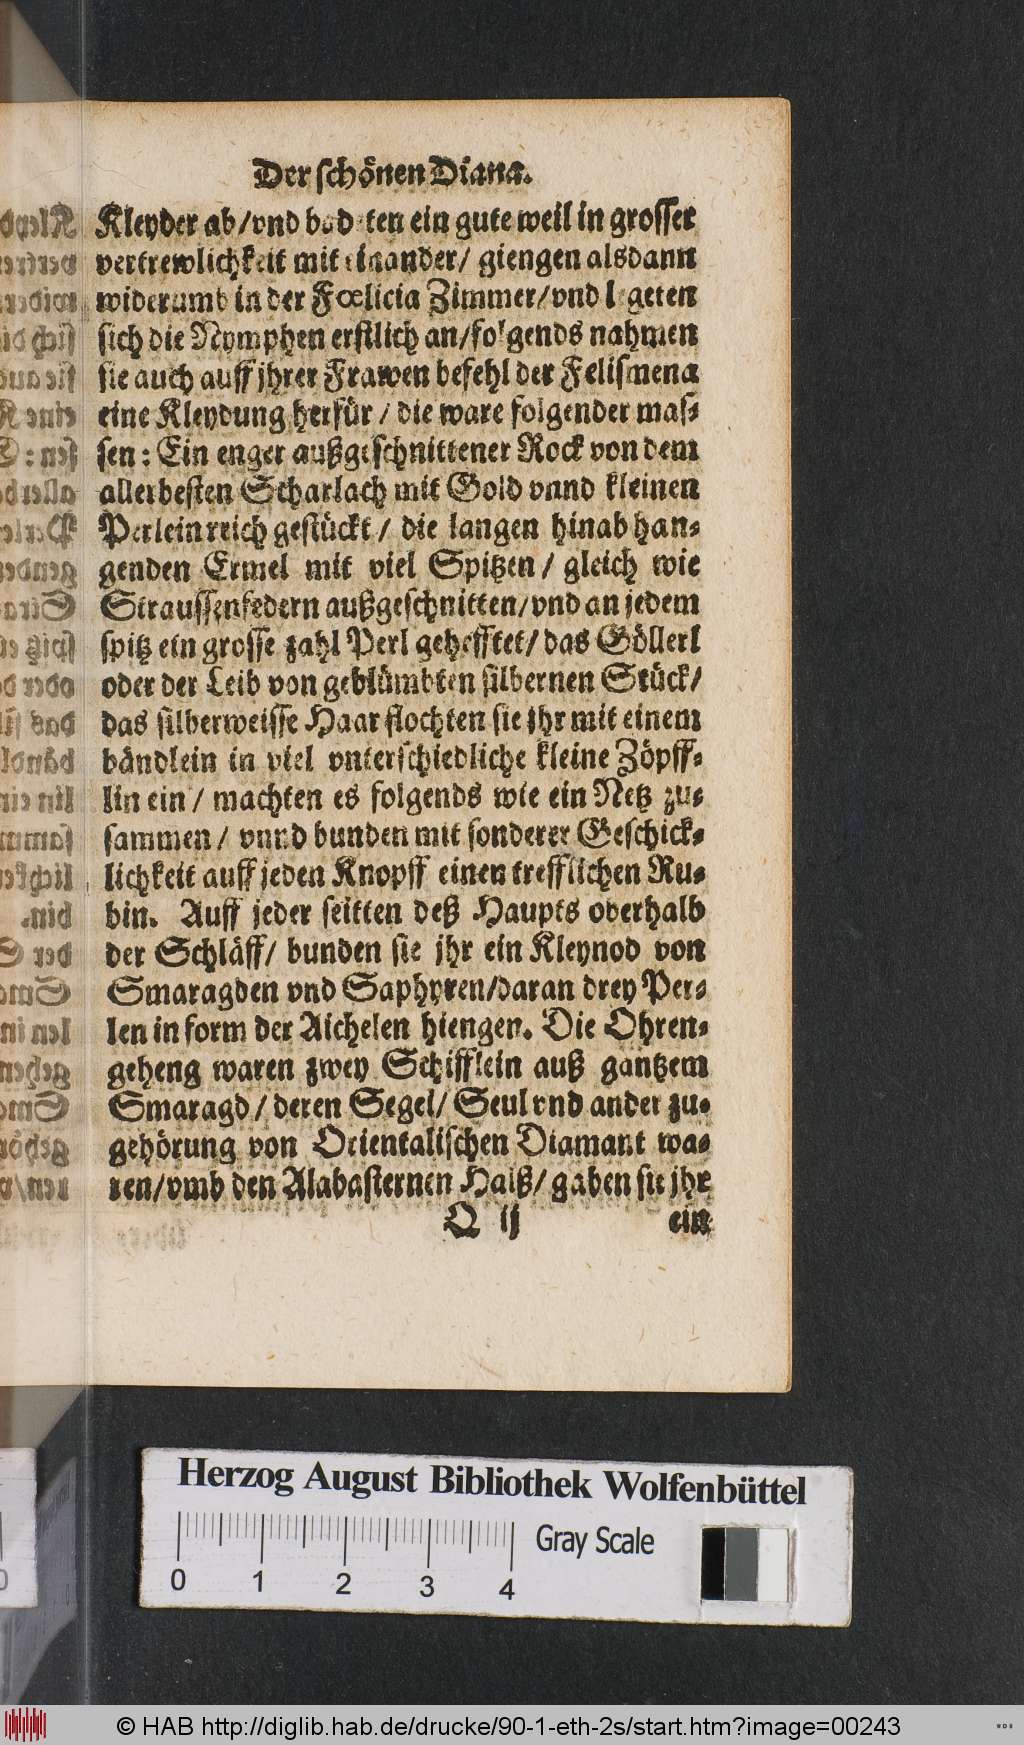 Der schönen Diana.
Kleyder ab/vnd badeten ein gute weil in grosser
vertrewlichkeit mit einander/ giengen alsdann
widerumb in der Fœlicia Zimmer/vnd legeten
sich die Nymphen erstlich an/folgends nahmen
sie auch auff jhrer Frawen befehl der Felismena
eine Kleydung herfür / die ware folgender mas-
sen: Ein enger außgeschnittener Rock von dem
allerbesten Scharlach mit Gold vnnd kleinen
Perlein reich gestückt / die langen hinab han-
genden Ermel mit viel Spitzen / gleich wie
Straussenfedern außgeschnitten/vnd an jedem
spitz ein grosse zahl Perl gehefftet/ das Göllerl
oder der Leib von geblümbten silbernen Stück/
das silberweisse Haar flochten sie jhr mit einem
bändlein in viel vnterschiedliche kleine Zöpff-
lin ein / machten es folgends wie ein Netz zu-
sammen / vnnd bunden mit sonderer Geschick-
lichkeit auff jeden Knopff einen trefflichen Ru-
bin. Auff jeder seitten deß Haupts oberhalb
der Schläff/ bunden sie jhr ein Kleynod von
Smaragden vnd Saphyren/daran drey Per-
len in form der Aichelen hiengen. Die Ohren-
geheng waren zwey Schifflein auß gantzem
Smaragd / deren Segel/ Seul vnd ander zu-
gehörung von Orientalischen Diamant wa-
ren/vmb den Alabasternen Halß/ gaben sie jhr
Q ij ein
Herzog August Bibliothek Wolfenbüttel
Gray Scale
0 1 2 3 4
© HAB http://diglib.hab.de/drucke/90-1-eth-2s/start.htm?image=00243